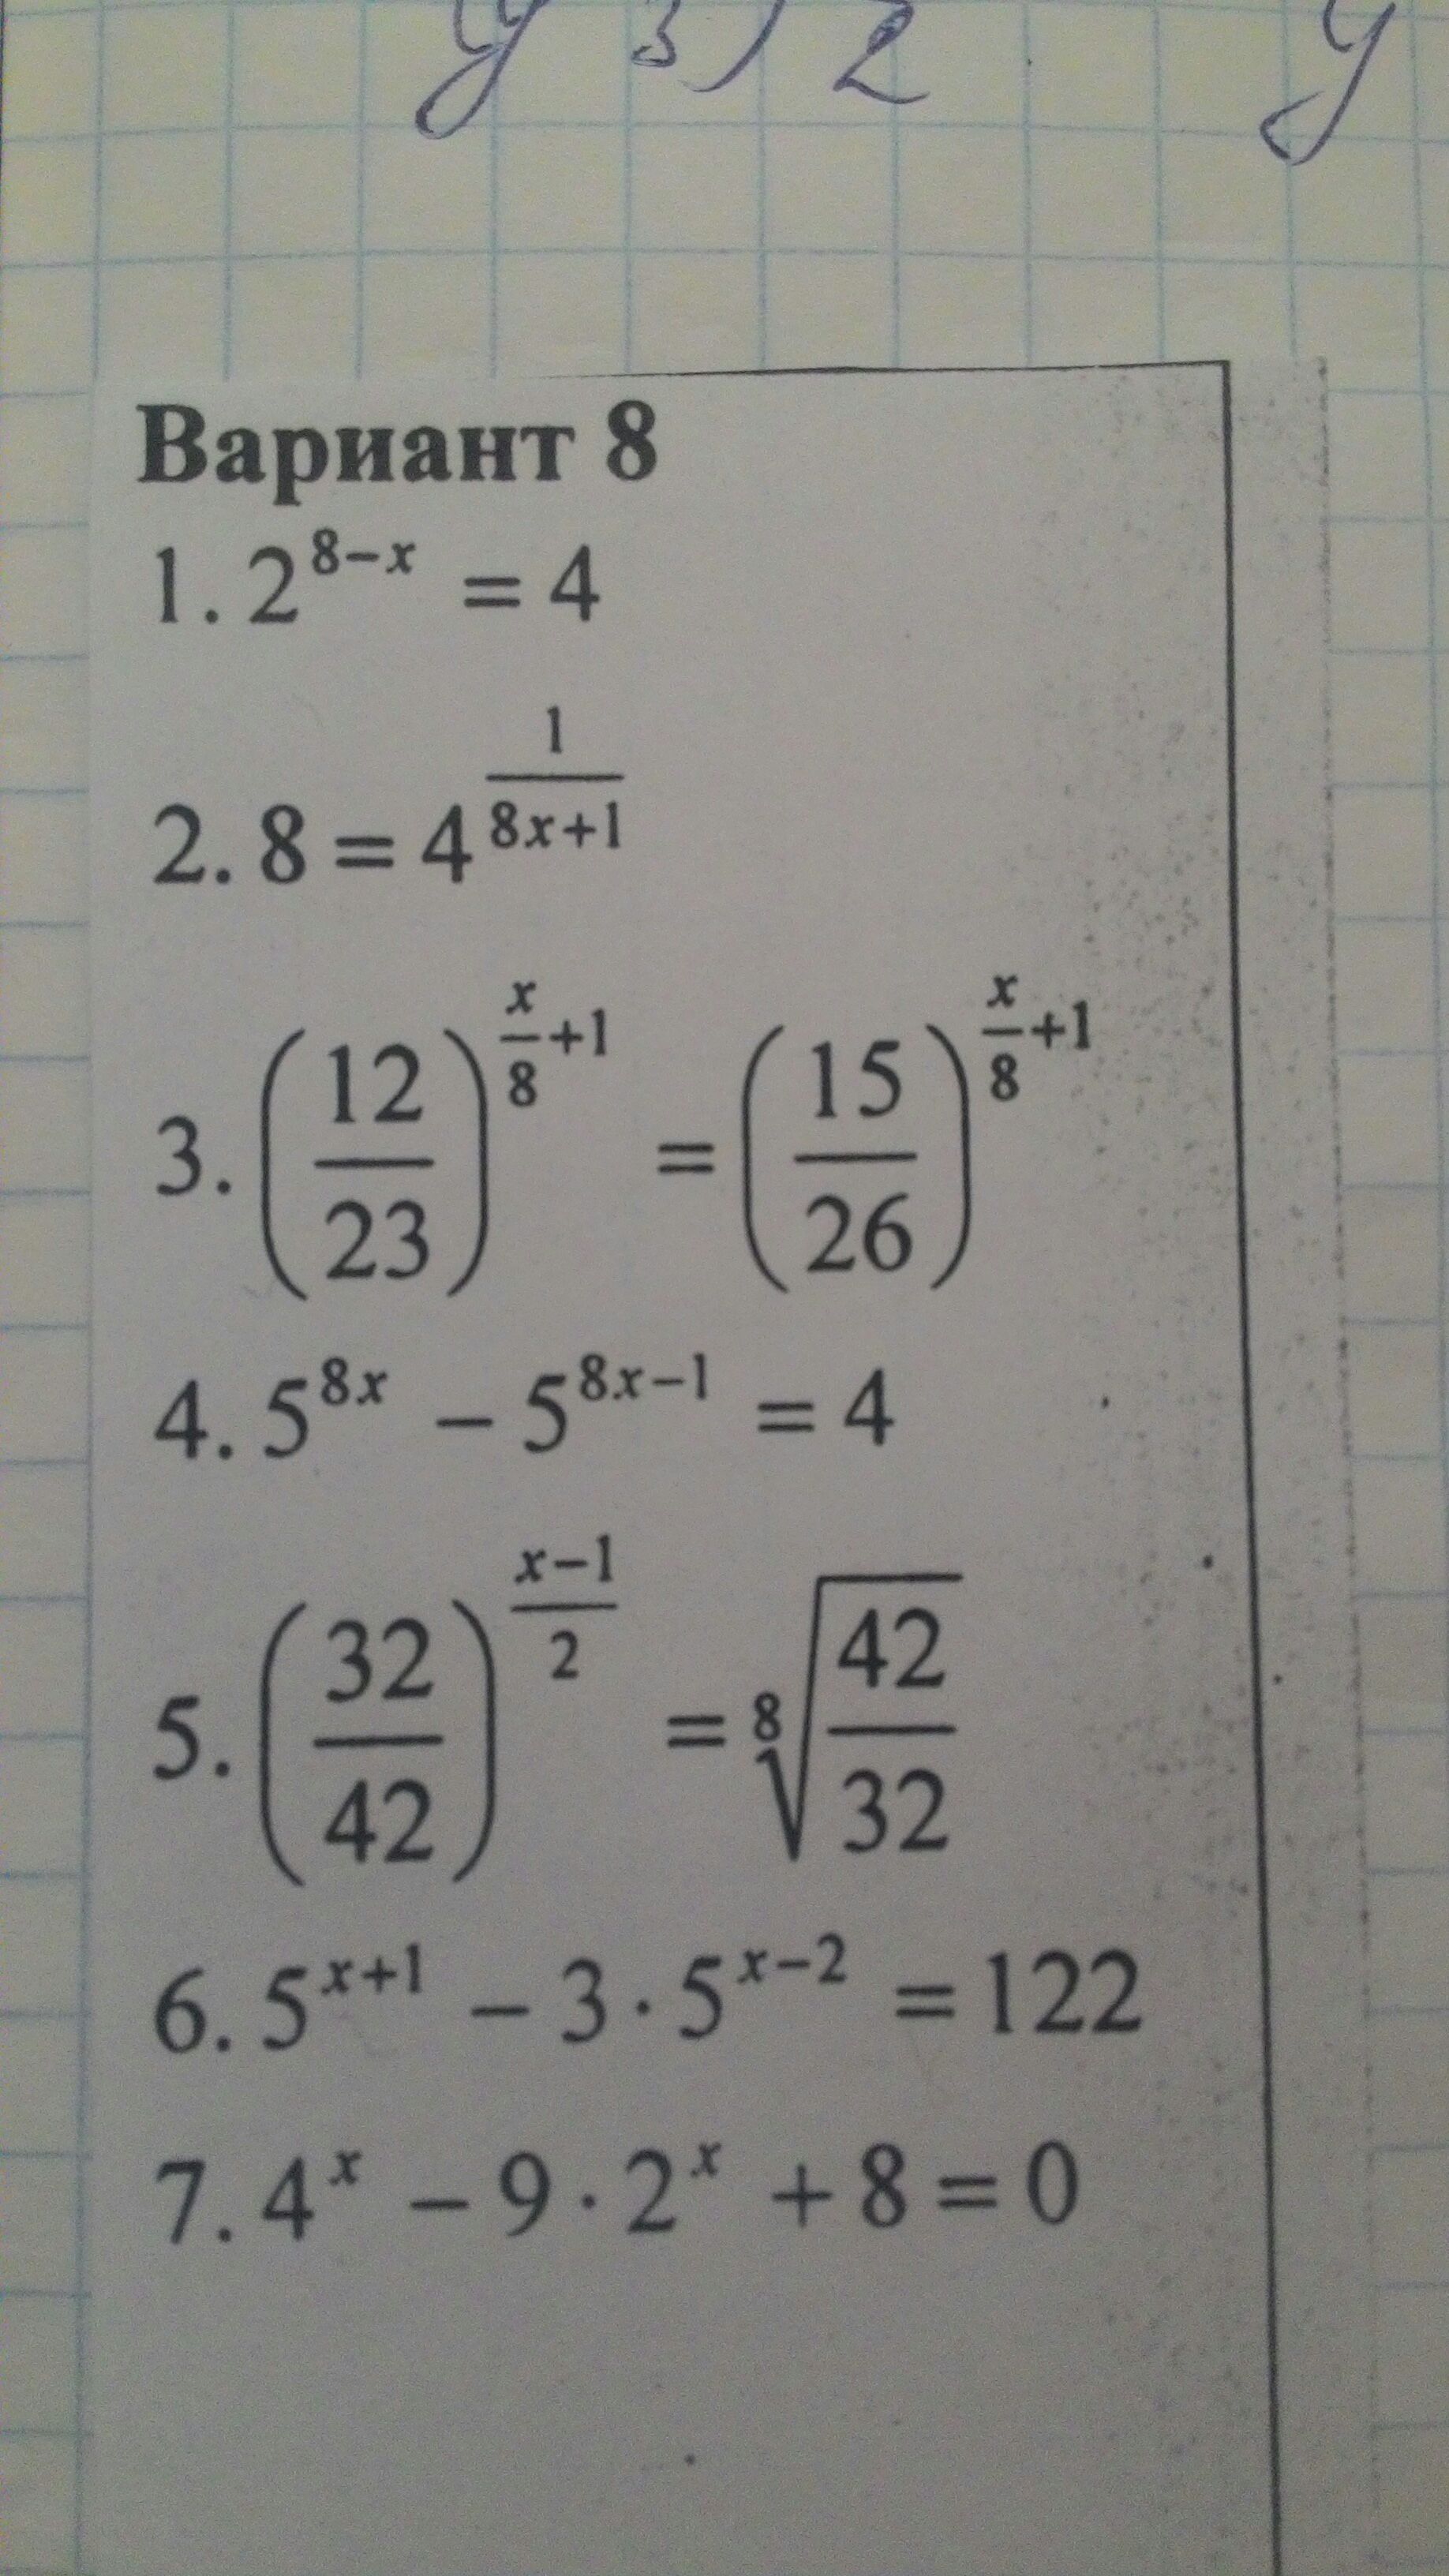 y 3) 2 y
Вариант 8
1. 2^{8-x} = 4
2. 8 = 4^{\frac{1}{8x+1}}
3. \left(\frac{12}{23}\right)^{\frac{x}{8}+1} = \left(\frac{15}{26}\right)^{\frac{x}{8}+1}
4. 5^{8x} - 5^{8x-1} = 4
5. \left(\frac{32}{42}\right)^{\frac{x-1}{2}} = \sqrt[8]{\frac{42}{32}}
6. 5^{x+1} - 3 · 5^{x-2} = 122
7. 4^x - 9 · 2^x + 8 = 0